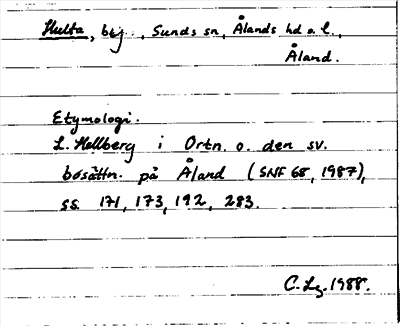 Hulta, bij, Sunds sn, Ålands hd o. l.,
Åland.
Etymologi.
L. Hellberg i Ortn. o. den sv.
bosättn. på Åland (SNF 68, 1987),
ss. 171, 173, 192, 283.
C. Lg. 1988.